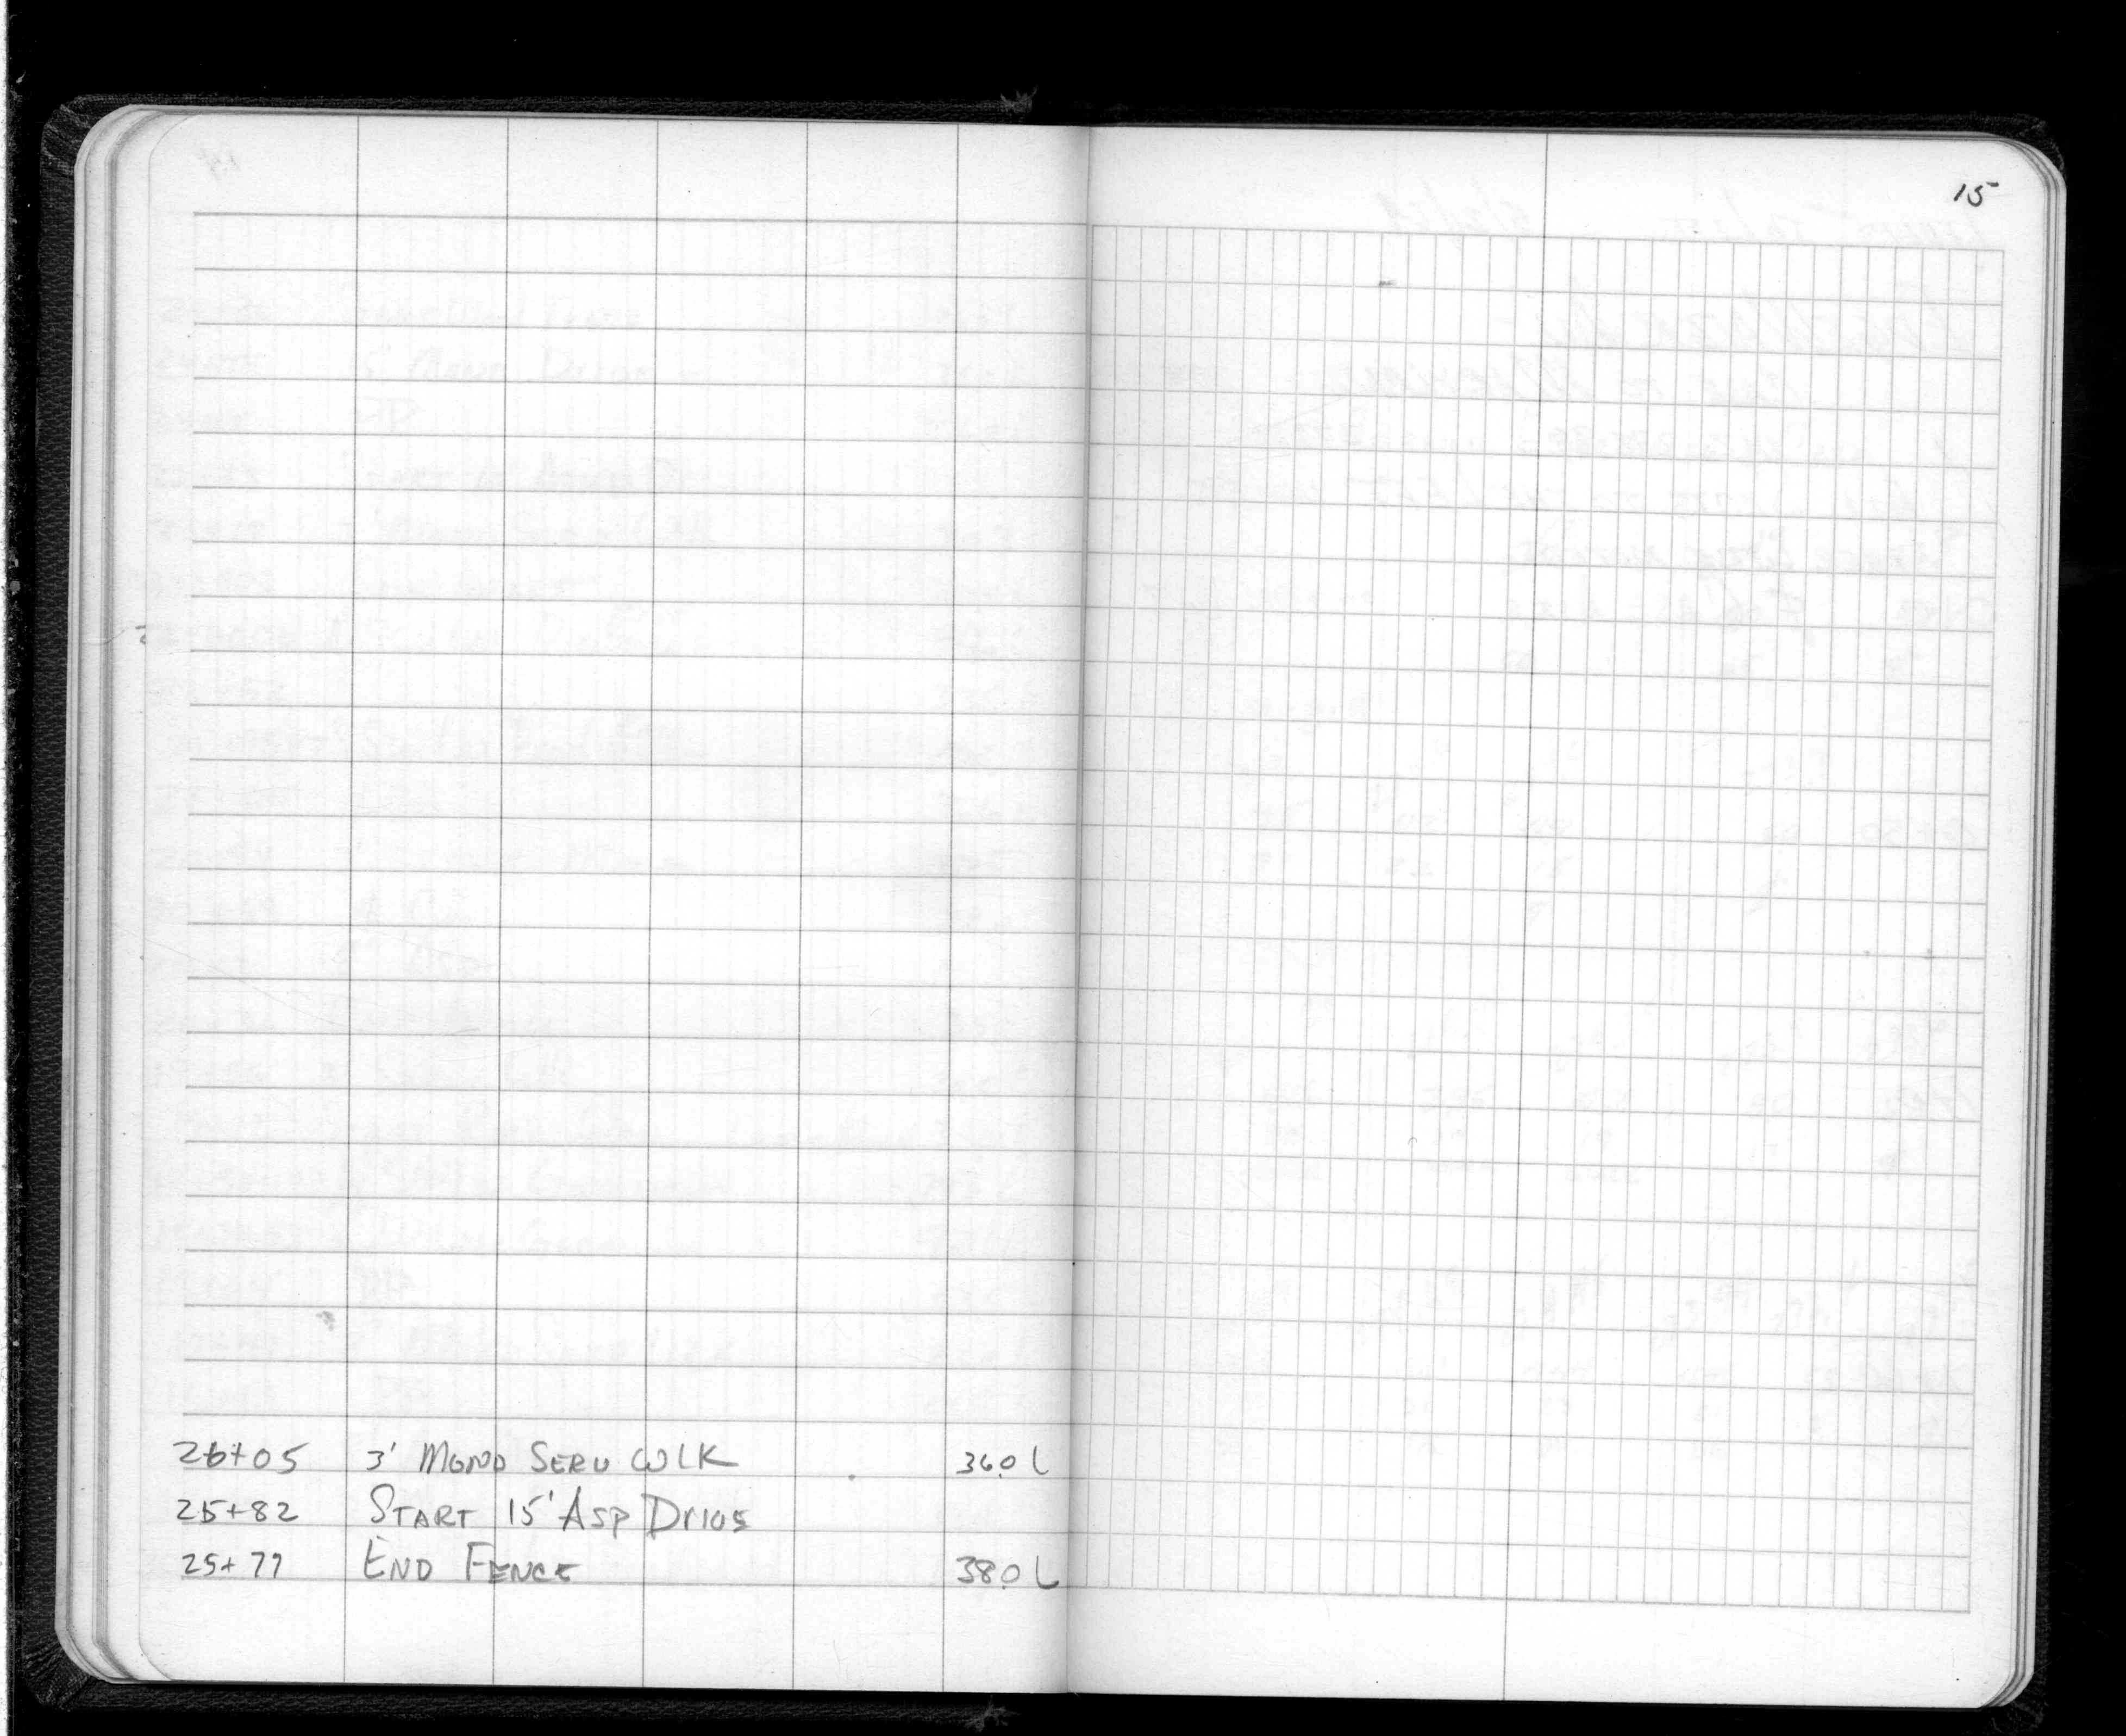 15
26+05 3' MONO SERV WLK 36.0 L
25+82 START 15' ASP DRIVE
25+77 END FENCE 38.0 L